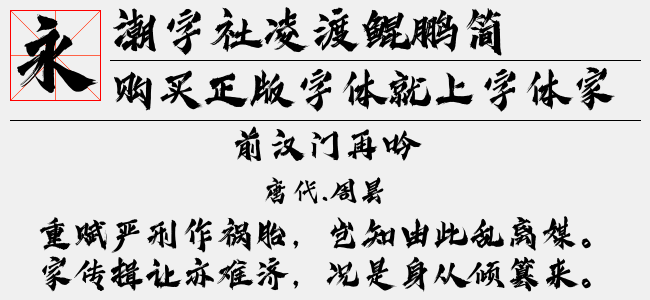 永
潮字社凌渡鲲鹏简
购买正版字体就上字体家
前汉门再吟
唐代.周昙
重赋严刑作祸胎，岂知由此乱离媒。
家传揖让亦难济，况是身从倾篡来。